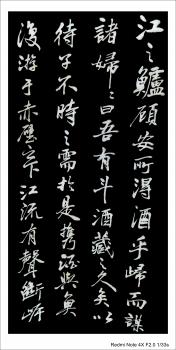 江之鱸顧安所得酒乎歸而謀
諸婦々曰吾有斗酒藏之久矣以
待子不時之需於是攜酒與魚
復游于赤壁之下江流有聲斷岸
Redmi Note 4X F2.0 1/33s